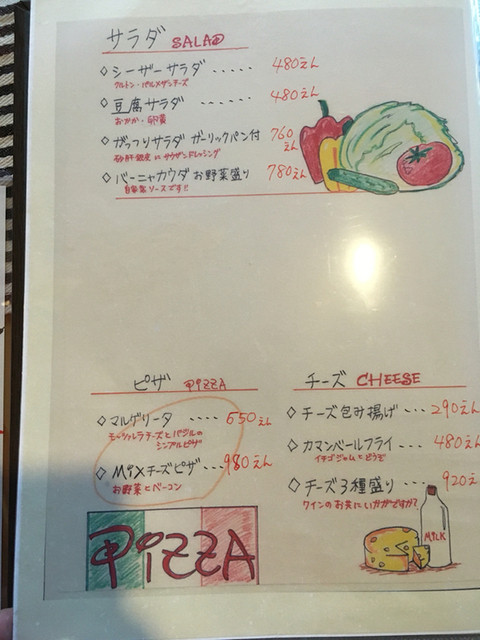 サラダ SALAD
◇シーザーサラダ ..... 480えん
クルトン・パルメザンチーズ
◇豆腐サラダ ...... 480えん
おかか・卵黄
◇がっつりサラダ ガーリックパン付 760えん
サウザンドレッシング
◇バーニャカウダ お野菜盛り 780えん
自家製ソースです!!
ピザ PIZZA
◇マルゲリータ .... 650えん
モッツァレラチーズとバジルの
シンプルピザ
◇MiXチーズピザ... 980えん
お野菜とベーコン
PIZZA
チーズ CHEESE
◇チーズ包み揚げ... 290えん
◇カマンベールフライ ... 480えん
イチゴジャムとどうぞ
◇チーズ3種盛り ... 920え
ワインのお共にいかがですか?
MILK